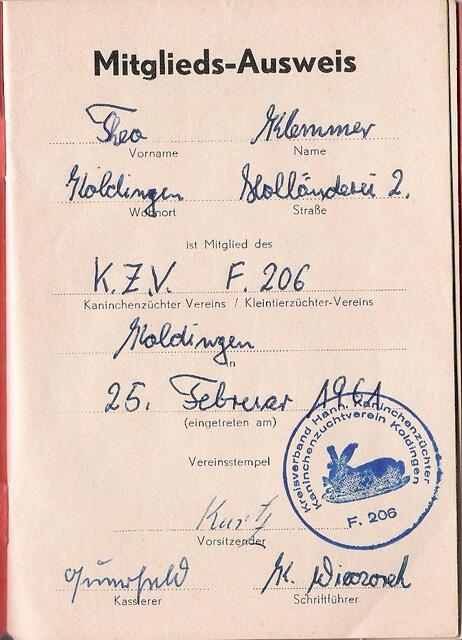 Mitglieds-Ausweis
Theo Klemmer
Vorname Name
Koldingen Holländerei 2.
Wohnort Straße
ist Mitglied des
K.Z.V. F. 206
Kaninchenzüchter Vereins / Kleintierzüchter-Vereins
Koldingen
in
25. Februar 1961
(eingetreten am)
Kreisverband Hann. Kaninchenzüchter
Kaninchenzuchtverein Koldingen
F. 206
Vereinsstempel
Kurtz
Vorsitzender
K.
Kassierer Schriftführer